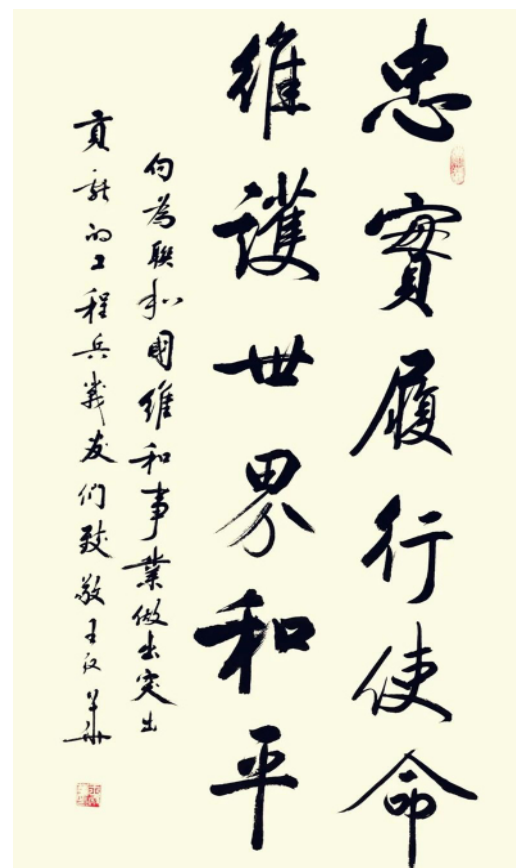 忠實履行使命
維護世界和平
向為聯和國維和事業做出突出
貢献的工程兵戰友們致敬 王